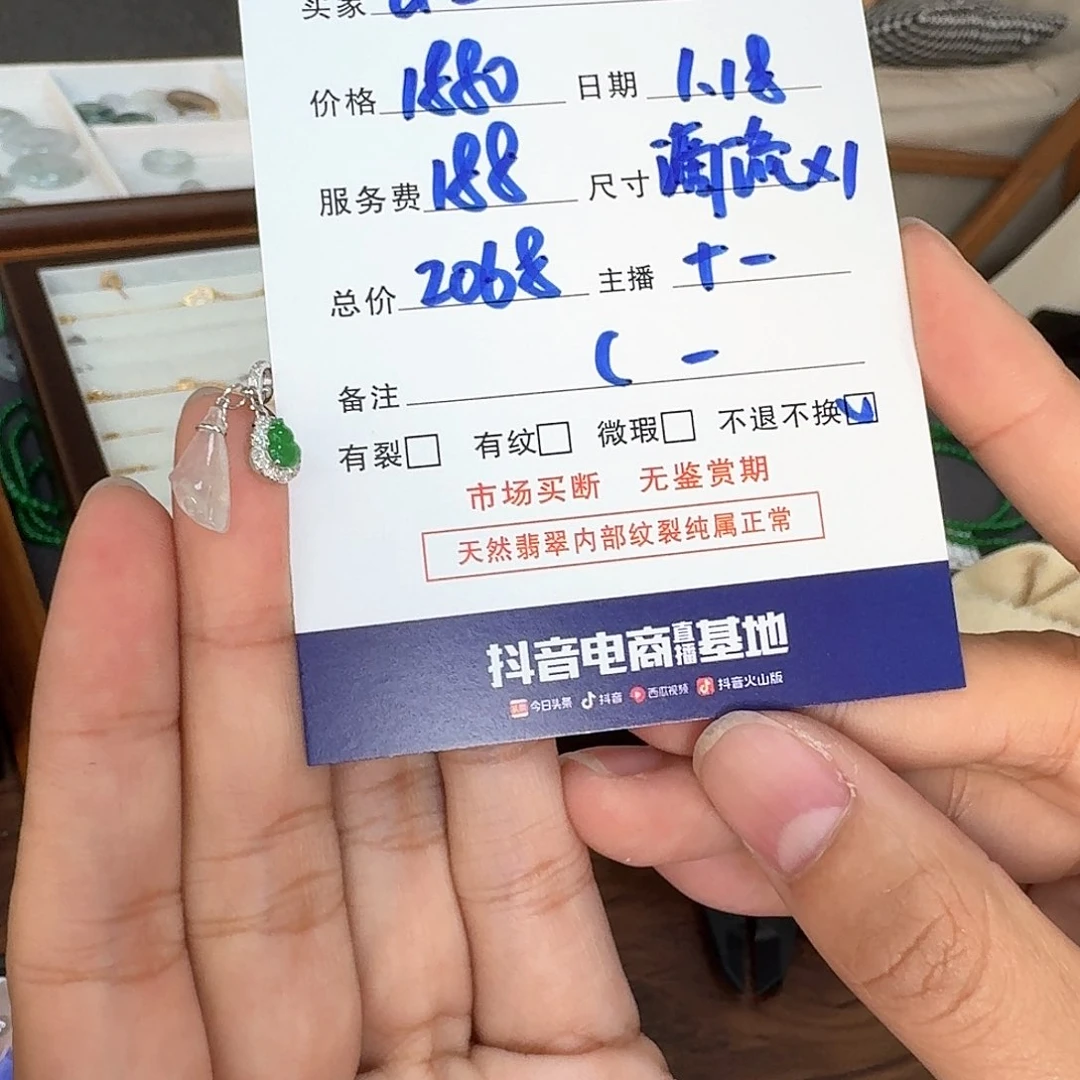 买家
价格 1880 日期 1.18
服务费 188 尺寸 X1
总价 2068 主播 十一
备注
有裂 有纹 微瑕 不退不换
市场买断 无鉴赏期
天然翡翠内部纹裂纯属正常
抖音电商直播基地
今日头条 抖音 西瓜视频 抖音火山版